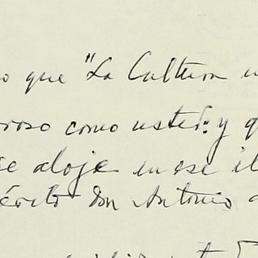 o que "La Cultura
roso como usted: y q
se aloje en ese il
érito don Antonio